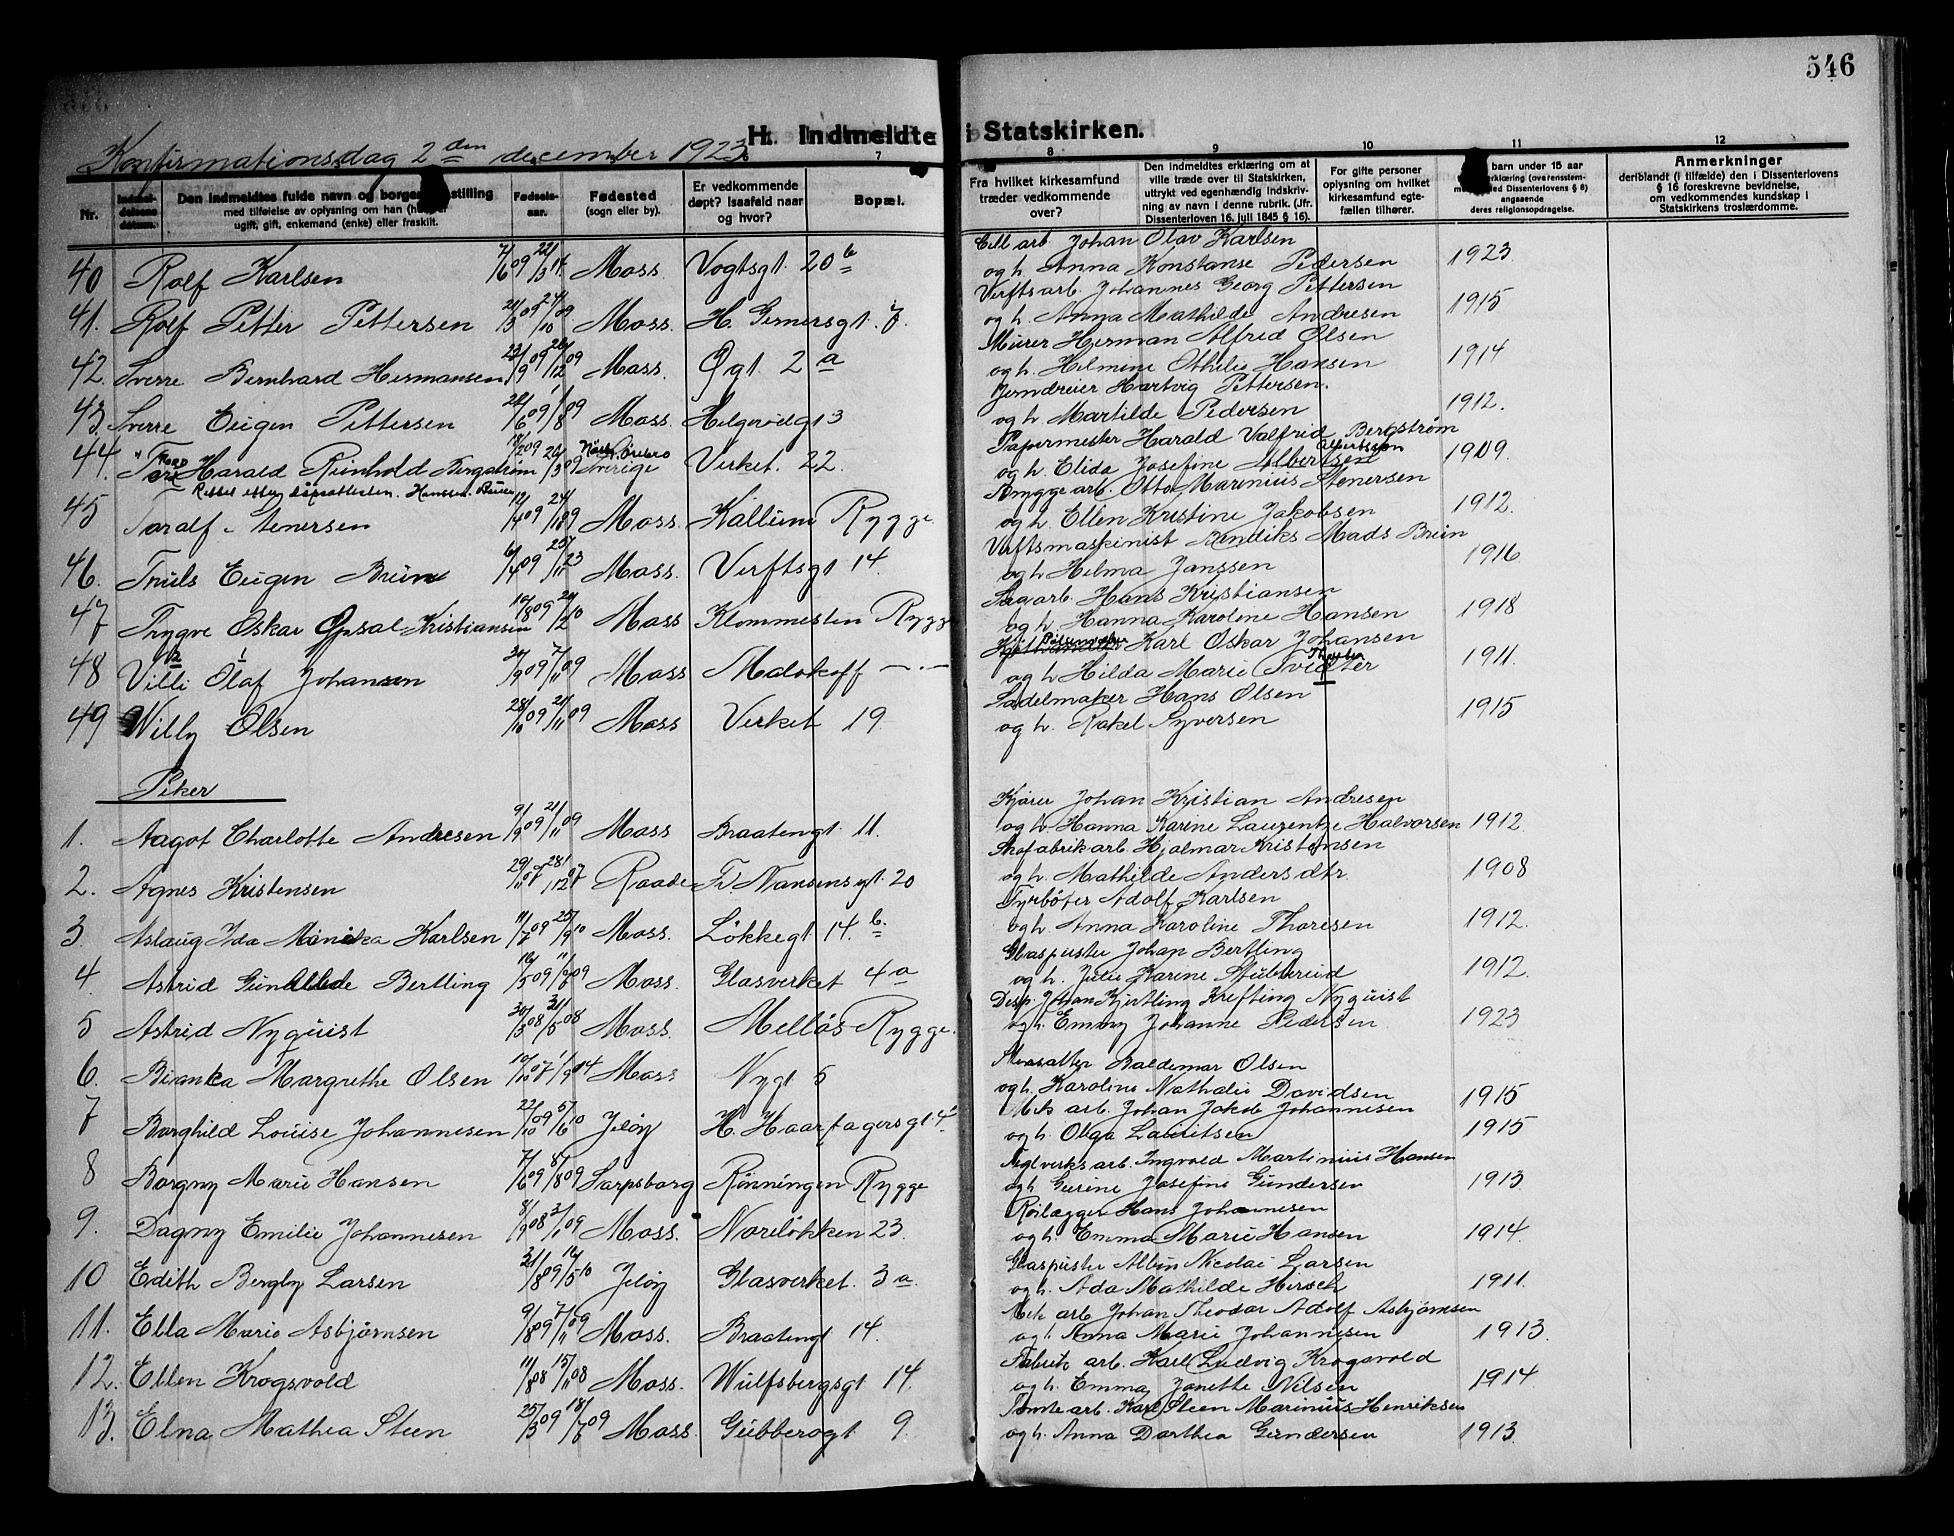 546
H. Indmeldte i Statskirken.
Konfirmationsdag 2den december 1923.
Nr.
Indmeldelsens datum.
Den indmeldtes fulde navn og borgerlige stilling
med tilføielse av oplysning om han (hun) er
ugift, gift, enkemand (enke) eller fraskilt.
Fødselsaar.
Fødested
(sogn eller by).
6
Er vedkommende
døpt? Isaafald naar
og hvor?
7
Bopæl.
8
Fra hvilket kirkesamfund
træder vedkommende
over?
9
Den indmeldtes erklæring om at
ville træde over til Statskirken,
uttrykt ved egenhændig indskrivning
av navn i denne rubrik. (Jfr.
Dissenterloven 16. juli 1845 § 16).
10
For gifte personer
oplysning om hvilket
kirkesamfund egtefællen
tilhører.
11
barn under 15 aar
erklæring (overensstemmende
med Dissenterlovens § 8)
angaaende
deres religionsopdragelse.
12
Anmerkninger
deriblandt (i tilfælde) den i Dissenterlovens
§ 16 foreskrevne bevidnelse,
om vedkommendes kundskap i
Statskirkens troslærdomme.
40 Rolf Karlsen 7/6 09 22/3 14 Moss Vogtsgt. 20 b
Cell arb Johan Olav Karlsen
og h. Anna Konstanse Pedersen 1923.
41. Rolf Petter Pettersen 21/3 09 24/10 09 Moss. H. Gernersgt. 7.
Verftsarb. Johannes Georg Pettersen
og h. Anna Mathilde Andresen 1915
42. Sverre Bernhard Hermansen 23/9 09 26/12 09 Moss. Øgt. 2 a
Murer Herman Alfred Olsen
og h. Helmine Othilie Hansen 1914
43. Sverre Eugen Pettersen 22/6 09 1/8 09 Moss. Helgerødgt 3
Jerndreier Hartvig Pettersen.
og h. Martilde Pedersen 1912.
44. Tord Harald Reinhold Bergstrøm 18/2 09 26/3 09 Sverige Verket. 22.
Papermester Harald Valfrid Bergstrøm
og h. Elida Josefine Albertsen Albertsson 1909.
Rettet efter dåpsattesten. Hanssen. Bruer
45 Toralf Stenersen 12/4 09 24/10 09 Moss. Kallum Rygge
Brygge arb. Otto Marinius Stenersen
og h. Ellen Kristine Jakobsen 1912.
46. Truls Eugen Brun 6/4 09 25/11 23 Moss. Verftsgt 14.
Verftsmaskinist Bendiks Mads Brun
og h Helma Janssen 1916
47 Trygve Oskar Opsal-Kristiansen 10/8 09 20/2 10 Moss Klommesten Rygge
Sagarb. Hans Kristiansen
og h. Hanna Karoline Hansen 1918
48 Villi Olaf Johansen 30/9 09 7/11 09 Moss Melokoff — . —
Karl Oskar Johansen
og h Hilda Marie 1911.
49 Willy Olsen 28/10 09 21/11 09 Moss Verket 19.
Sadelmaker Hans Olsen
og h. Rakel Syversen 1915
Piker
1. Aagot Charlotte Andresen 9/9 09 21/11 09 Moss Braatengt. 11.
Kjører Johan Kristian Andresen
og h. Hanna Karine Laurentze Halvorsen 1912.
2. Agnes Kristensen 29/11 07 28/12 07 Raade Fr. Nansensgt. 20
Skofabrikarb. Hjalmar Kristensen
og h. Mathilde Andersdtr. 1908
3. Aslaug Ida Monika Karlsen 11/7 09 25/9 10 Moss. Løkkegt 14. b.
Fyrbøter Adolf Karlsen
og h. Anna Karoline Thoresen 1912.
4. Astrid Gunelde Bertling 16/5 09 11/7 09 Moss. Glasverket 4 a
Glaspuster Johan Bertling
og h. Julie Karine Stubberud 1912.
5 Astrid Nyquist 30/3 08 31/5 08 Moss. Melløs Rygge.
Disp. Johan Kjertling Krefting Nyquist
og h. Emmy Johanne Pedersen 1923
6. Bianka Margrethe Olsen 10/10 07 1/9 14 Moss Nygt 5
Baldemar Olsen
og h. Karoline Nathalie Davidsen 1915
7 Borghild Louise Johannesen 22/10 09 5/6 10 Jeløy H. Haarfagersgt 4.
Mek arb. Johan Jakob Johannesen
og h. Olga Lauritsen 1915
8 Borgny Marie Hansen 7/6 09 8/8 09 Sarpsborg Rønningen Rygge
Teglverks arb. Ingvold Martinius Hansen
og h. Gurine Josefine Gundersen 1913
9. Dagny Emilie Johannesen 8/9 08 3/1 09 Moss. Noreløkken 23.
Rørlægger Hans Johannesen
og h. Emma Marie Hansen 1914.
10 Edith Bergly Larsen 31/8 09 16/5 10 Jeløy Glasverket. 3 a.
Glaspuster Albin Nicolai Larsen
og h. Ada Mathilde Hirsch 1911.
11. Ella Marie Asbjørnsen 9/8 09 7/11 09 Moss. Braatengt 14.
Mek arb Johan Theodor Adolf Asbjørnsen
og h. Anna Marie Johannesen 1913.
12. Ellen Krogsvold 11/8 08 15/11 08 Moss. Wulfsbergsgt 14.
Fabrik arb. Karl Ludvig Krogsvold
og h. Emma Janette Nilsen 1914
13. Elna Mathea Steen 25/3 09 18/7 09 Moss Gubberogt 9.
Tomte arb. Karl Steen Marinius Henriksen
og h. Anna Dorthea Gundersen 1913.